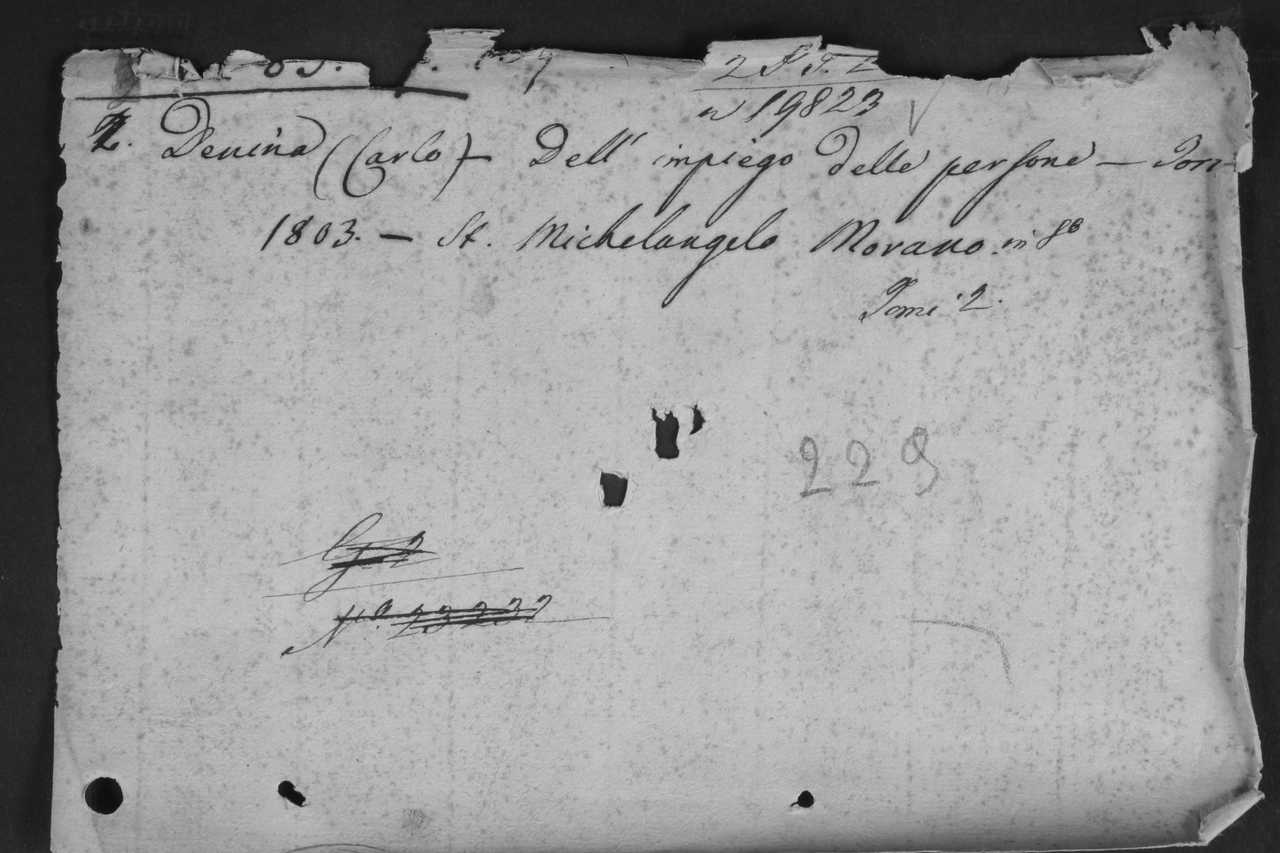 n 19823
2. Denina (Carlo) - Dell' inpiego delle persone - Torr
1803. - St. Michelangelo Morano. in 8º
Tomi 2.
229
Nº. 23232